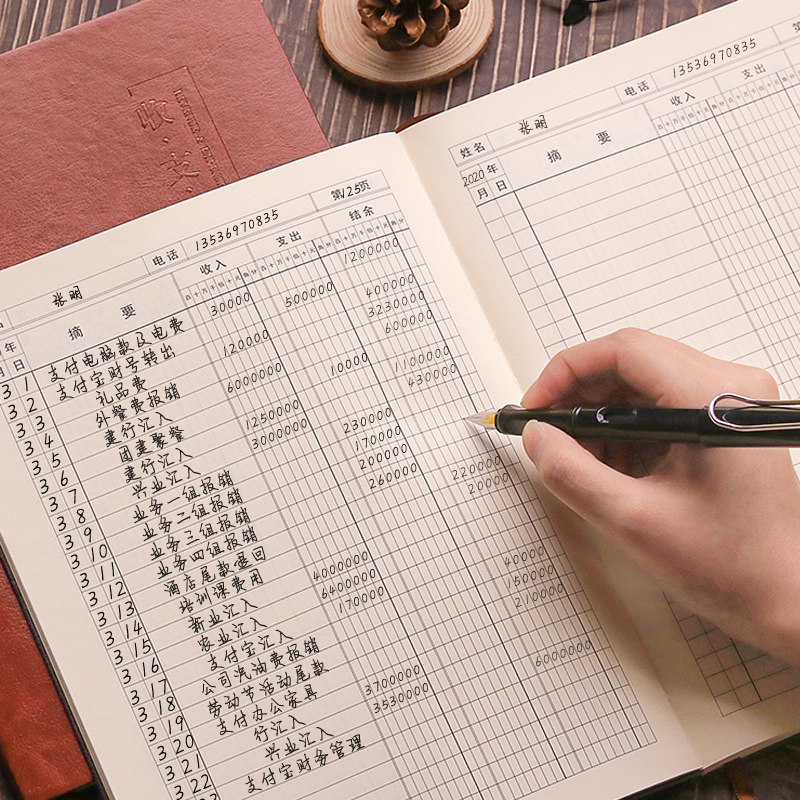 收·支
张明
电话 13536970835
第125页
年
月 日
摘 要
收入
支出
结余
百十万千百十元角分
百十万千百十元角分
百十万千百十元角分
3 1 支付电脑款及电费
3 2 支付宝财号转出
3 3 礼品费
3 4 外餐费报销
3 5 建行汇入
3 6 团建聚餐
3 7 建行汇入
3 8 兴业汇入
3 9 业务一组报销
3 10 业务二组报销
3 11 业务三组报销
3 12 业务四组报销
3 13 酒店尾款叠回
3 14 培训课费用
3 15 新业汇入
3 16 农业汇入
支付宝汇入
3 17 公司汽油费报销
3 18 劳动节活动尾款
3 19 支付办公家具
3 20 行汇入
3 21 兴业汇入
3 22 支付宝财务管理
30000
120000
6000000
1250000
3000000
4000000
6400000
170000
3700000
3530000
500000
10000
230000
170000
200000
260000
1200000
400000
3230000
600000
1100000
430000
220000
20000
40000
150000
210000
6000000
姓名 张明
电话 13536970835
第
2020年
月 日
摘 要
收入
支出
百十万千百十元角分
百十万千百十元角分